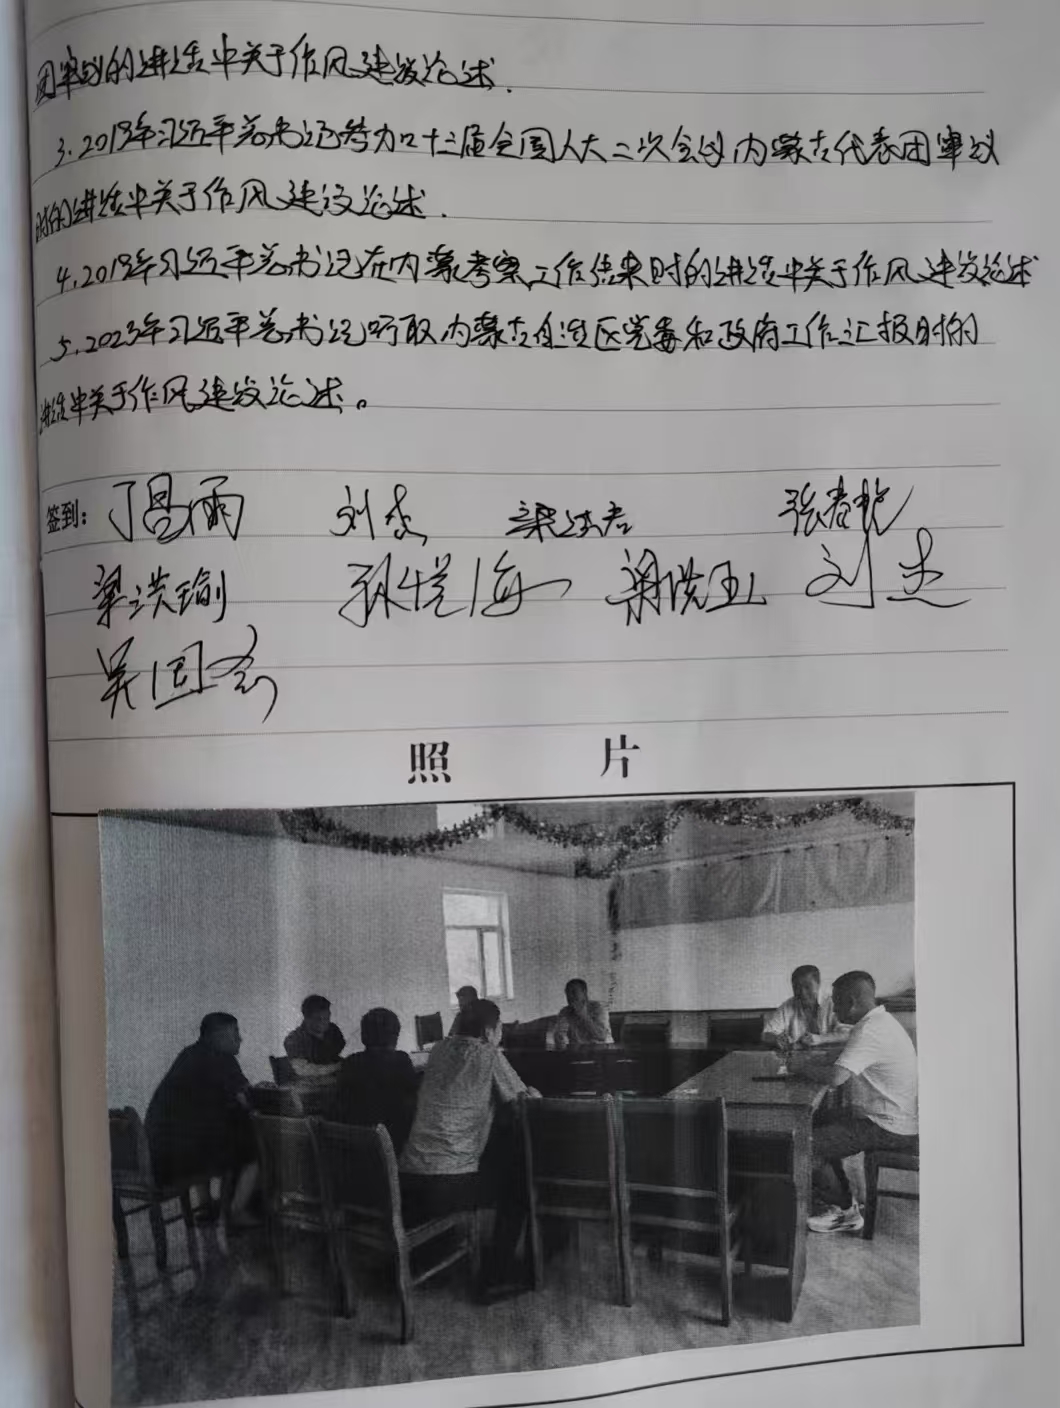 团审议的讲话中关于作风建设论述.
3.2019年习近平总书记参加十三届全国人大二次会议内蒙古代表团审议
时的讲话中关于作风建设论述.
4.2019年习近平总书记在内蒙考察工作结束时的讲话中关于作风建设论述
5.2023年习近平总书记听取内蒙古自治区党委和政府工作汇报时的
讲话中关于作风建设论述。
签到: 丁昌雨 刘杰 张春艳
梁洪瑜 孙悦海 梁洪玉 刘杰
吴国
照 片